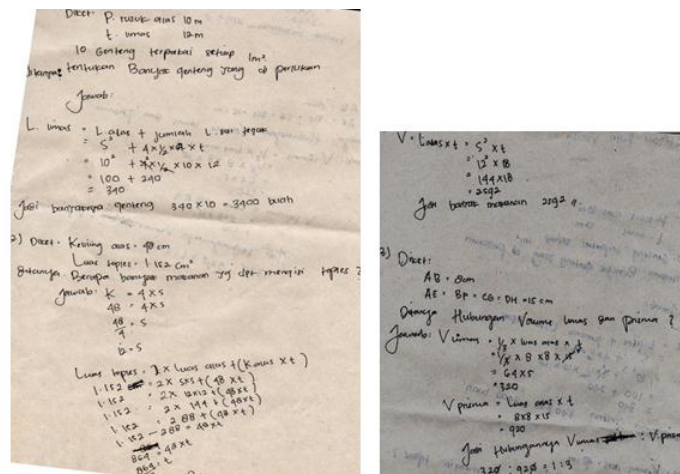 Diket: P. rusuk alas 10 m
t. limas 12 m
10 Genteng terpakai setiap 1m²
ditanya: tentukan Banyak genteng yang di perlukan
Jawab:
L. limas = L. alas + jumlah L. sisi tegak
= S² + 4 x ½ x a x t
= 10² + 4 x ½ x 10 x 12
= 100 + 240
= 340
Jadi banyaknya genteng 340 x 10 = 3400 buah
2) Diket = Keliling alas = 48 cm
Luas toples = 1.152 cm²
ditanya. Berapa banyak makanan yg dpt mengisi toples ?
Jawab: K = 4 x s
48 = 4 x s
48/4 = s
12 = s
Luas toples = 2 x luas alas + (K alas x t)
1.152 = 2 x s x s + (48 x t)
1.152 = 2 x 12 x 12 + (48 x t)
1.152 = 2 x 144 + (48 x t)
1.152 = 288 + (48 x t)
1.152 - 288 = 48 x t
864 = 48 x t
V = L. alas x t = S² x t
= 12² x 18
= 144 x 18
= 2592
Jadi banyak makanan 2592
3) Diket:
AB = 8 cm
AE = BF = CG = DH = 15 cm
Ditanya Hubungan Volume limas dan prisma ?
Jawab: V limas = ⅓ x luas alas x t
= ⅓ x 8 x 8 x 15
= 64 x 5
= 320
V prisma = Luas alas x t
= 8 x 8 x 15
= 920
Jadi Hubungannya V limas : V prisma
320 : 920 = 1 : 3